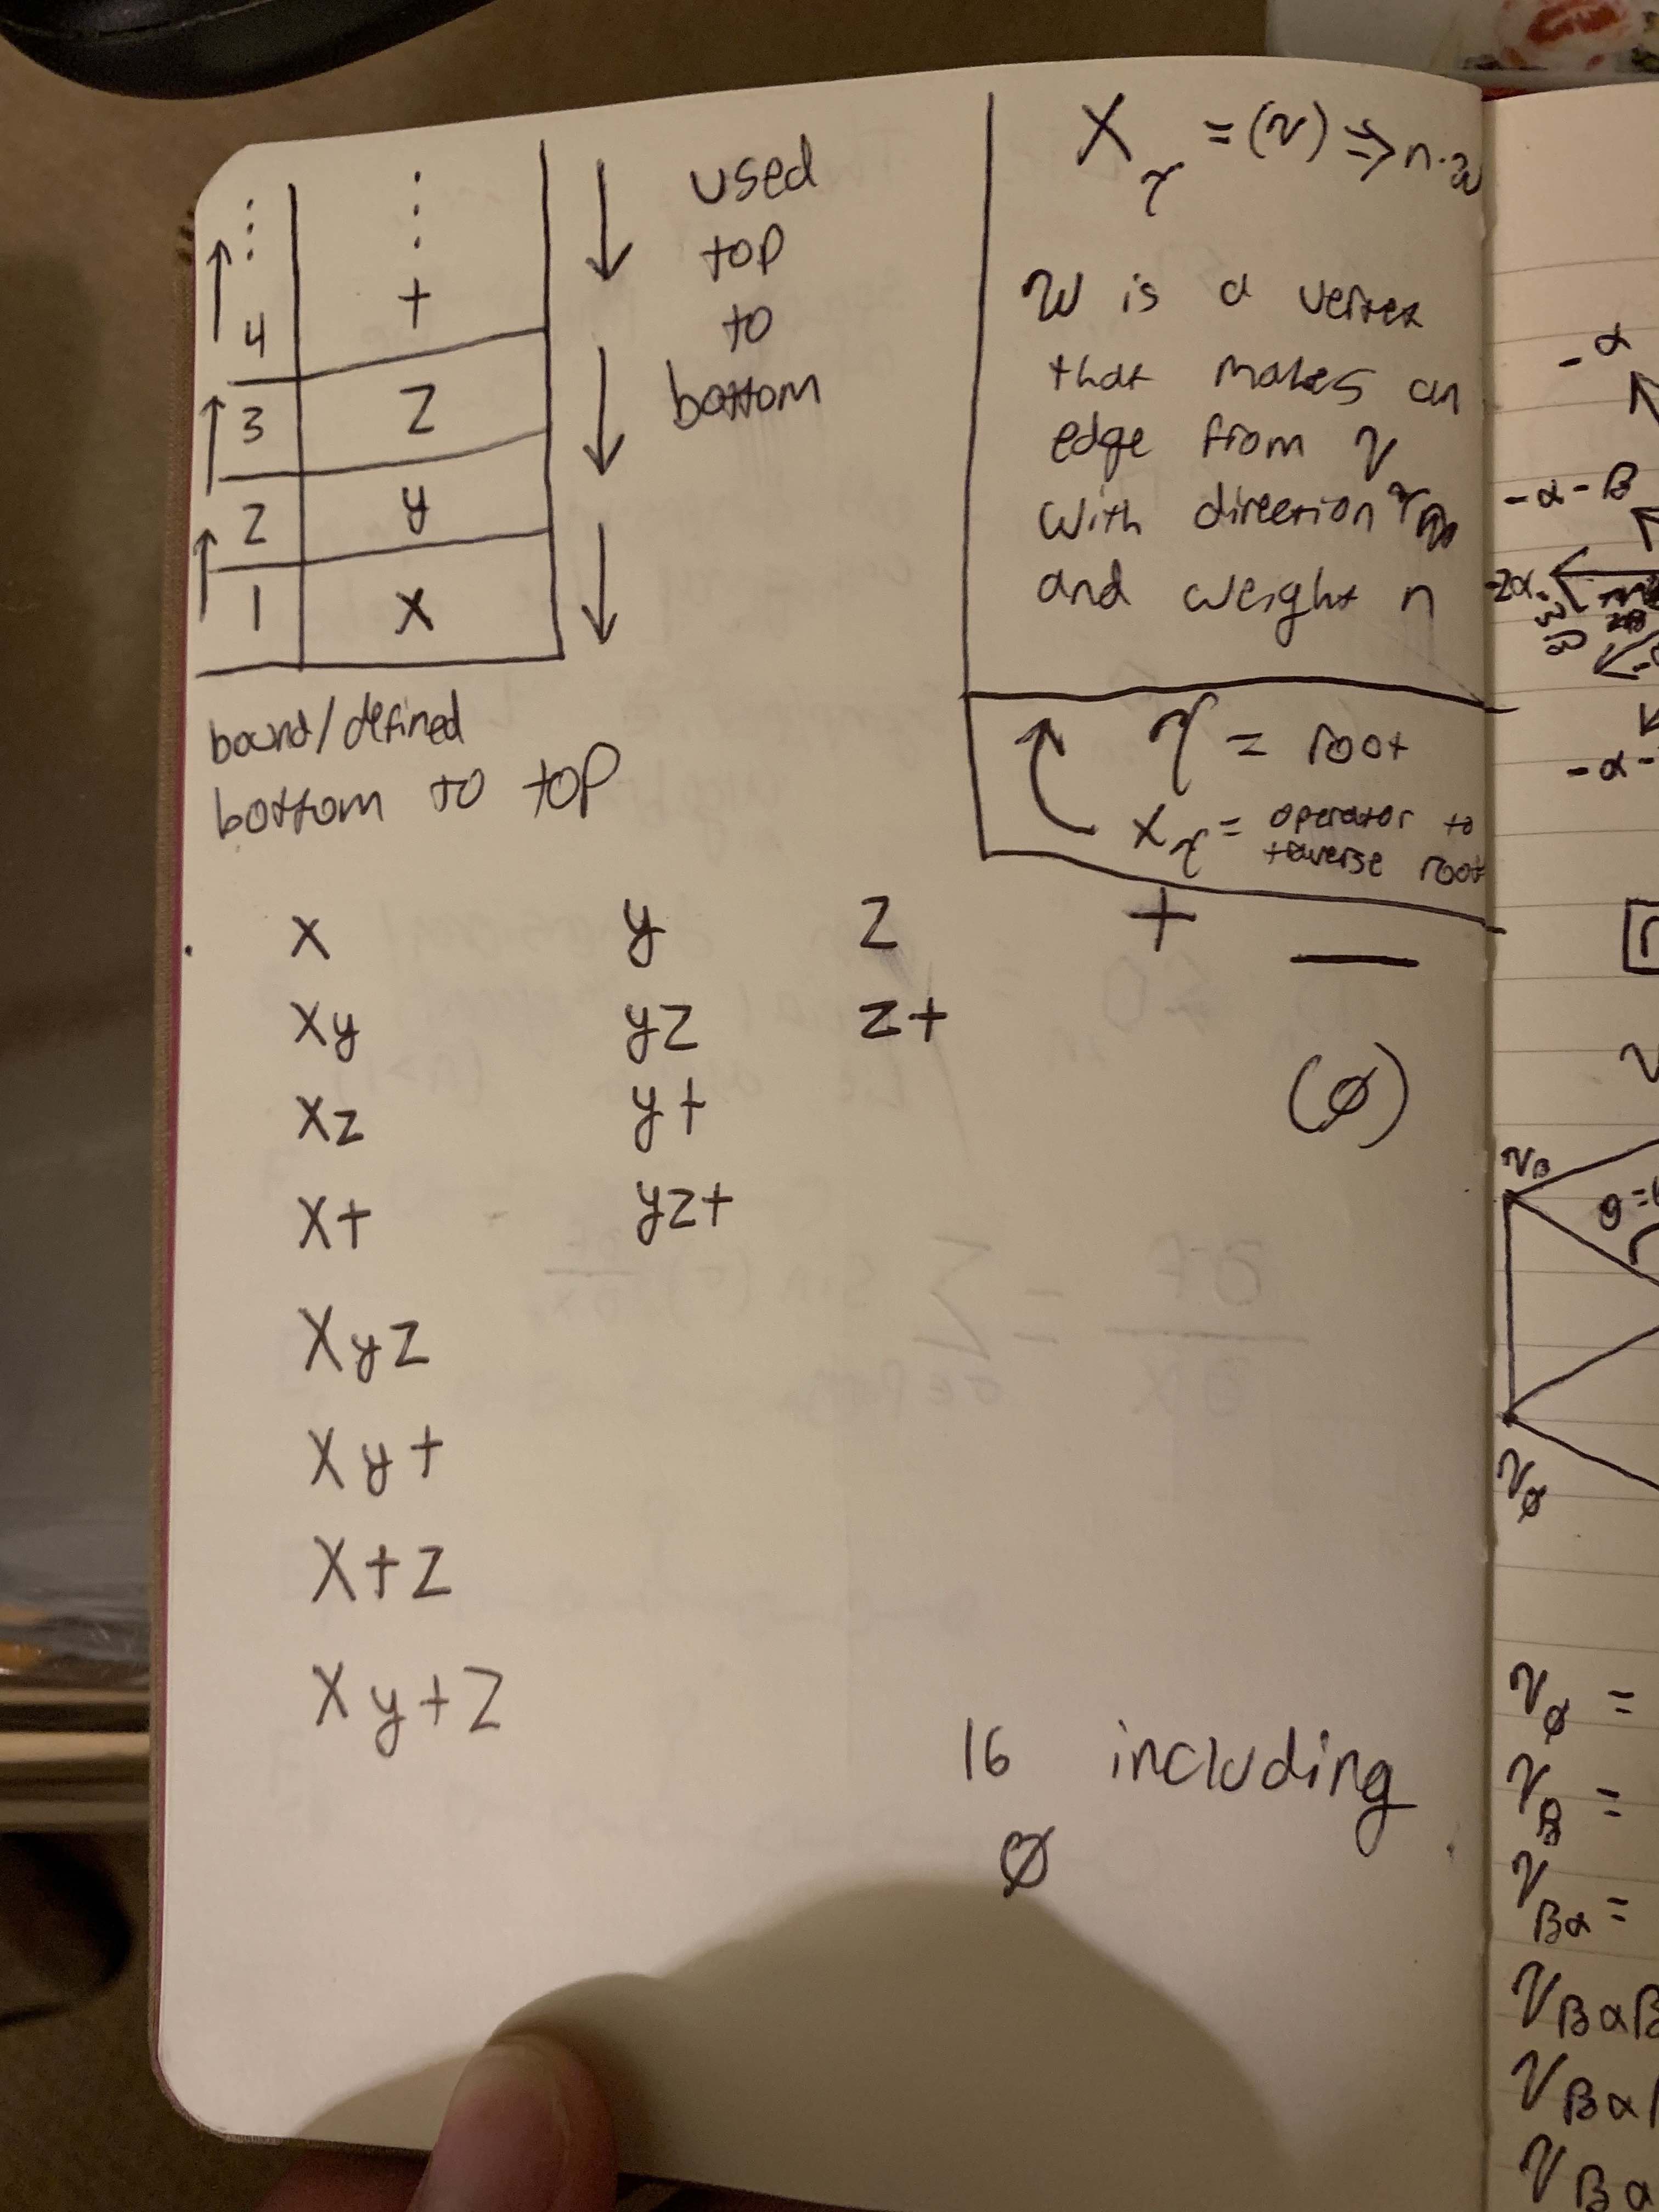 ⋮ ⋮
4 +
3 z
2 y
1 x
used
top
to
bottom
bound/defined
bottom to top
X_γ = (v) ⇒ n·w
w is a vertex
that makes an
edge from v
with direction γ
and weight n
γ = root
X_γ = operator to
traverse root
x y z + —
xy yz z+
xz y+ (Ø)
x+ yz+
xyz
xy+
x+z
xy+z
16 including
Ø
-α
-α-β
-α-
v_β
θ=
v_Ø
v_Ø =
v_β =
v_βα =
v_βαβ
v_βα
v_βα